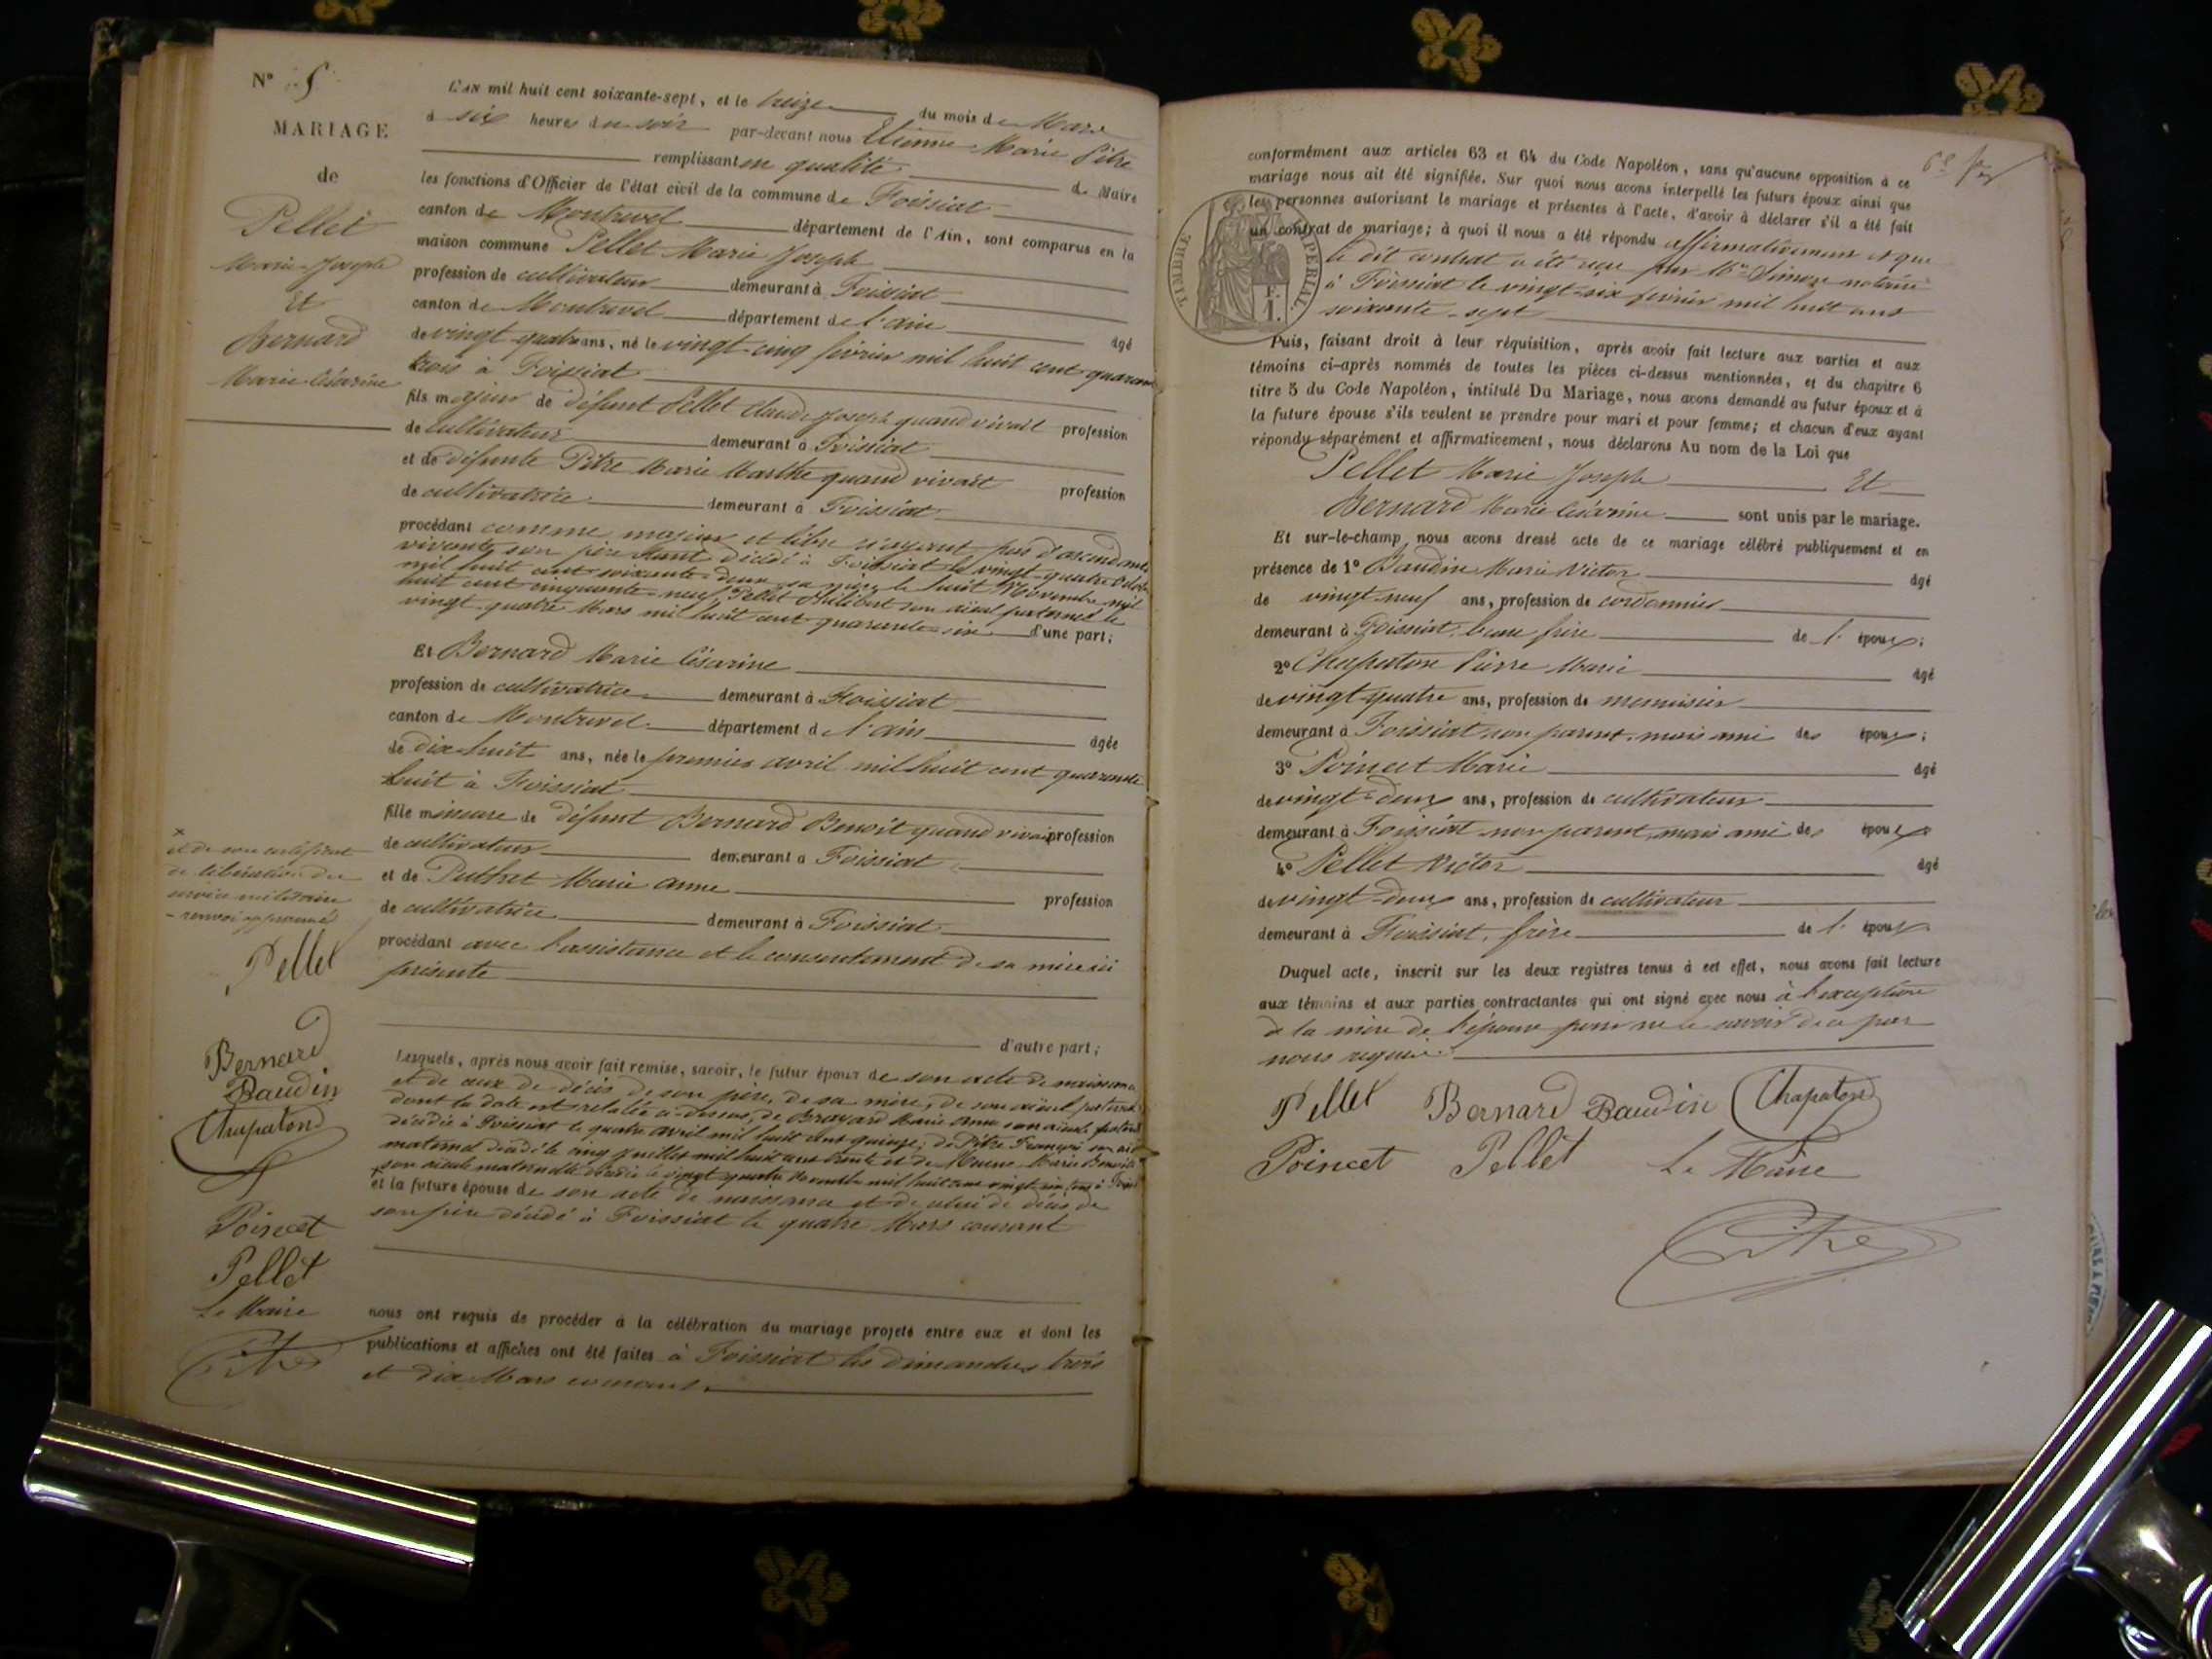 N° 5
MARIAGE
de
Pellet
Marie Joseph
Et
Bernard
Marie Césarine
L'AN mil huit cent soixante-sept, et le treize du mois de Mars
à six heures du soir par-devant nous Etienne Marie Pitre
remplissant en qualité de Maire
les fonctions d'Officier de l'état civil de la commune de Foissiat
canton de Montrevel département de l'Ain, sont comparus en la
maison commune Pellet Marie Joseph
profession de cultivateur demeurant à Foissiat
canton de Montrevel département de l'ain
âgé de vingt quatre ans, né le vingt-cinq février mil huit cent quarante
trois à Foissiat
fils majeur de défunt Pellet Claude Joseph quand vivait profession
de cultivateur demeurant à Foissiat
et de défunte Pitre Marie Marthe quand vivait profession
de cultivatrice demeurant à Foissiat
procédant comme majeur et libre n'ayant pas d'ascendants
vivants, son père étant décédé à Foissiat le vingt-quatre Octobre
mil huit cent soixante-deux, sa mère le huit Novembre mil
huit cent cinquante-neuf, Pellet Philibert son aïeul paternel le
vingt-quatre Mars mil huit cent quarante-six d'une part;
Et Bernard Marie Césarine
profession de cultivatrice demeurant à Foissiat
canton de Montrevel département de l'ain
âgée de dix-huit ans, née le premier avril mil huit cent quarante
huit à Foissiat
fille mineure de défunt Bernard Benoît quand vivait profession
de cultivateur demeurant à Foissiat
et de Puthet Marie Anne profession
de cultivatrice demeurant à Foissiat
procédant avec l'assistance et le consentement de sa mère ici
présente
d'autre part;
Lesquels, après nous avoir fait remise, savoir, le futur époux de son acte de naissance
et de ceux de décès de son père, de sa mère, de son aïeul paternel
dont la date est relatée ci-dessus, de Bravard Marie Anne son aïeule paternelle
décédée à Foissiat le quatre avril mil huit cent quinze; de Pitre François son aïeul
maternel décédé le cinq juillet mil huit cent trente et de Marie Benoîte
son aïeule maternelle décédée le vingt quatre mil huit cent vingt-cinq tous à Foissiat
et la future épouse de son acte de naissance et de celui de décès de
son père décédé à Foissiat le quatre Mars courant
nous ont requis de procéder à la célébration du mariage projeté entre eux et dont les
publications et affiches ont été faites à Foissiat les dimanches trois
et dix Mars courant.
x et de son certificat
de libération du
service militaire
- renvoi approuvé
Pellet
Bernard
Baudin
Chapaton
Poincet
Pellet
Le Maire
Pitre
conformément aux articles 63 et 64 du Code Napoléon, sans qu'aucune opposition à ce
mariage nous ait été signifiée. Sur quoi nous avons interpellé les futurs époux ainsi que
les personnes autorisant le mariage et présentes à l'acte, d'avoir à déclarer s'il a été fait
un contrat de mariage; à quoi il nous a été répondu affirmativement et que
le dit contrat a été reçu par Me Simon notaire
à Foissiat le vingt-six février mil huit cent
soixante-sept
TIMBRE IMPERIAL
F.
1.
Puis, faisant droit à leur réquisition, après avoir fait lecture aux parties et aux
témoins ci-après nommés de toutes les pièces ci-dessus mentionnées, et du chapitre 6
titre 5 du Code Napoléon, intitulé Du Mariage, nous avons demandé au futur époux et à
la future épouse s'ils veulent se prendre pour mari et pour femme; et chacun d'eux ayant
répondu séparément et affirmativement, nous déclarons Au nom de la Loi que
Pellet Marie Joseph Et
Bernard Marie Césarine sont unis par le mariage.
Et sur-le-champ nous avons dressé acte de ce mariage célébré publiquement et en
présence de 1° Baudin Marie Victor âgé
de vingt neuf ans, profession de cordonnier
demeurant à Foissiat, beau frère de l'époux;
2° Chapaton Pierre Marie âgé
de vingt-quatre ans, profession de menuisier
demeurant à Foissiat non parent, mais ami des époux;
3° Poincet Marie âgé
de vingt-deux ans, profession de cultivateur
demeurant à Foissiat non parent, mais ami des époux
4° Pellet Victor âgé
de vingt-deux ans, profession de cultivateur
demeurant à Foissiat, frère de l'époux
Duquel acte, inscrit sur les deux registres tenus à cet effet, nous avons fait lecture
aux témoins et aux parties contractantes qui ont signé avec nous à l'exception
de la mère de l'épouse pour ne le savoir de ce par
nous requise.
Pellet Bernard Baudin Chapaton
Poincet Pellet Le Maire
Pitre